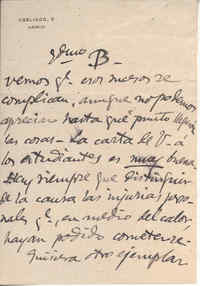 CABALLERO, 9
MADRID
B.
vemos qe esos mozos se
complican, aunque no podemos
apreciar hasta qué punto llegarán
las cosas. - La carta de V. a
los estudiantes es muy buena
Hay siempre que distinguir
de la causa las injurias perso-
nales qe, en medio del calor,
hayan podido cometerse.
Quisiera otro ejemplar